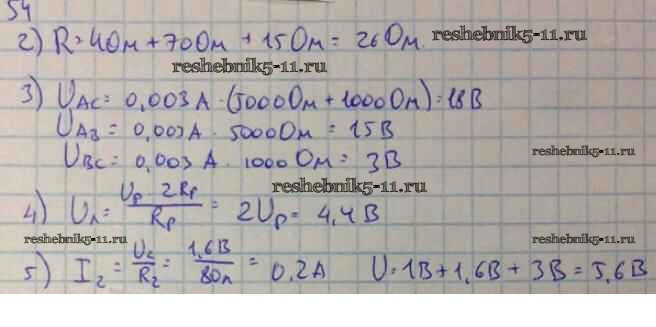 54
2) R = 4Ом + 7Ом + 15Ом = 26Ом. reshebnik5-11.ru
reshebnik5-11.ru
3) UAC = 0,003А · (5000Ом + 1000Ом) = 18В
UAB = 0,003А · 5000Ом = 15В
UBC = 0,003А · 1000Ом = 3В reshebnik5-11.ru
reshebnik5-11.ru
4) Uл = Uр · 2Rр / Rр = 2Uр = 4,4В
reshebnik5-11.ru reshebnik5-11.ru
5) I2 = U2 / R2 = 1,6В / 8Ом = 0,2А U = 1В + 1,6В + 3В = 5,6В